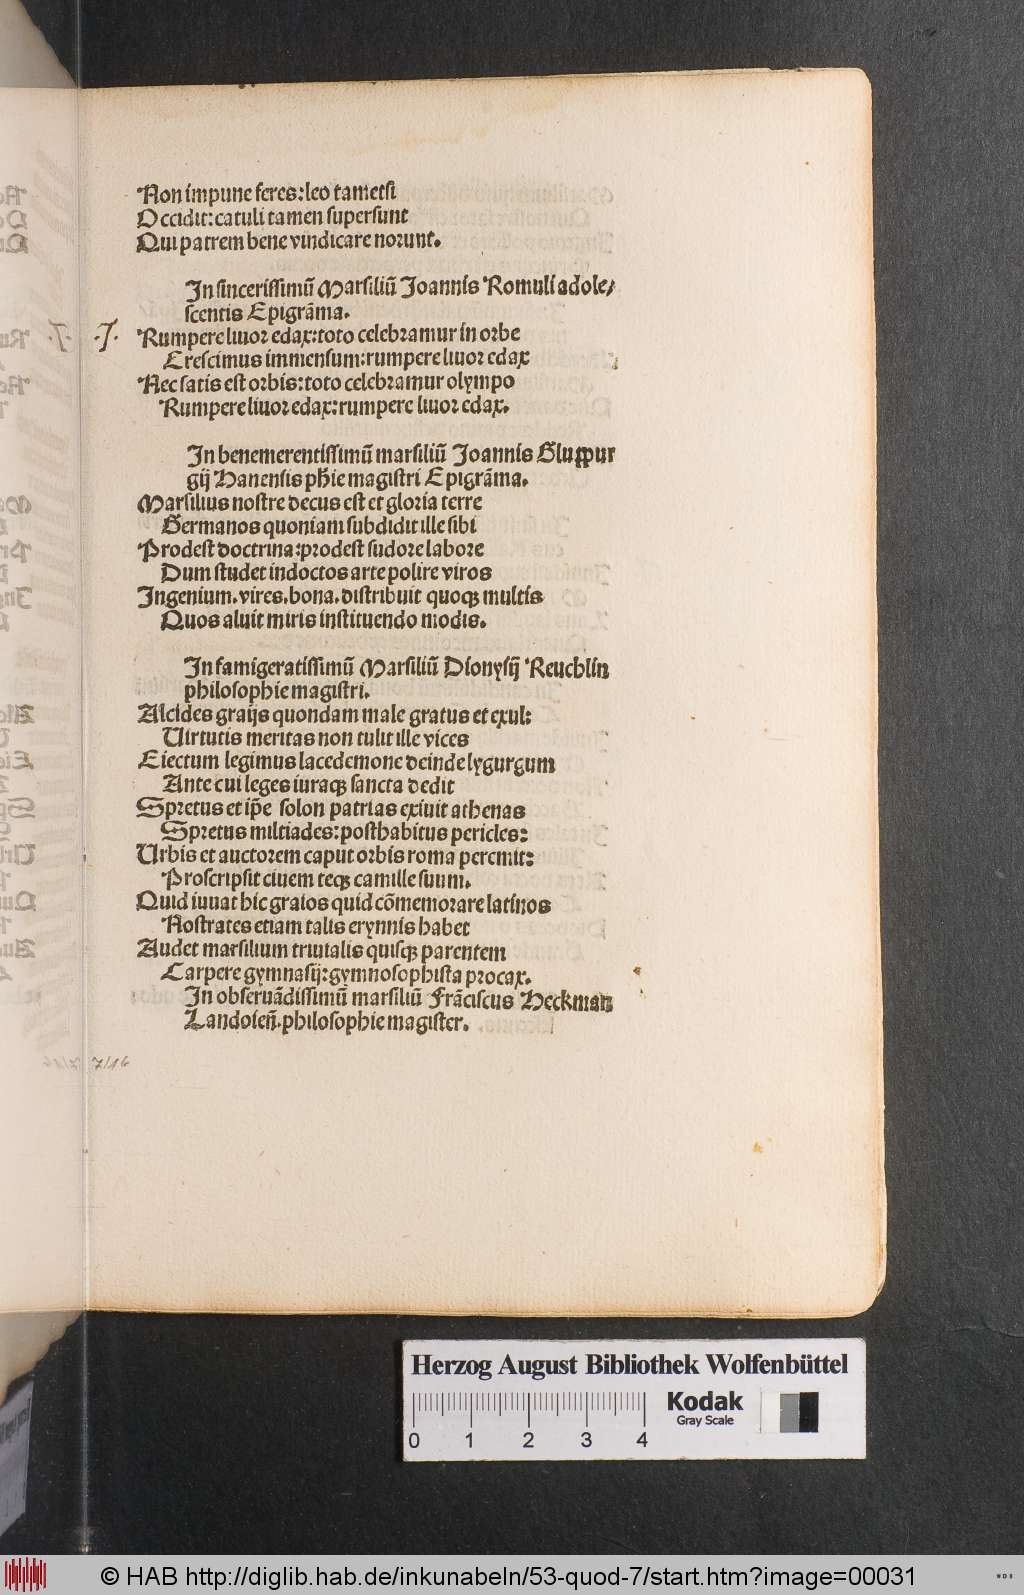 Non impune feres: leo tametsi
Occidit: catuli tamen supersunt
Qui patrem bene vindicare norunt.
In sincerissimū Marsiliū Joannis Romuli adole/
scentis Epigrāma.
.J. Rumpere liuor edax: toto celebramur in orbe
Crescimus immensum: rumpere liuor edax
Nec satis est orbis: toto celebramur olympo
Rumpere liuor edax: rumpere liuor edax.
In benemerentissimū marsiliū Joannis
gij Hanensis phīe magistri Epigrāma.
Marsilius nostre decus est et gloria terre
Germanos quoniam subdidit ille sibi
Prodest doctrina: prodest sudore labore
Dum studet indoctos arte polire viros
Ingenium. vires. bona. distribuit quoqꝫ multis
Quos aluit miris instituendo modis.
In famigeratissimū Marsiliū Dionysij Reuchlin
philosophie magistri.
Alcides graijs quondam male gratus et exul:
Uirtutis meritas non tulit ille vices
Eiectum legimus lacedemone deinde lygurgum
Ante cui leges iuraqꝫ sancta dedit
Spretus et ip̄e solon patrias exiuit athenas
Spretus miltiades: posthabitus pericles:
Urbis et auctorem caput orbis roma peremit:
Proscripsit ciuem teqꝫ camille suum.
Quid iuuat hic graios quid cōmemorare latinos
Nostrates etiam talis erynnis habet
Audet marsilium triuialis quisqꝫ parentem
Carpere gymnasij: gymnosophista procax.
In obseruādissimū marsiliū Frāciscus Heckman
Landoien̄. philosophie magister.
Herzog August Bibliothek Wolfenbüttel
0 1 2 3 4
Kodak
Gray Scale
© HAB http://diglib.hab.de/inkunabeln/53-quod-7/start.htm?image=00031